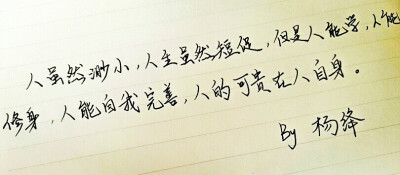 人虽然渺小，人生虽然短促，但是人能学，人能
修身，人能自我完善，人的可贵在人自身。
By 杨绛